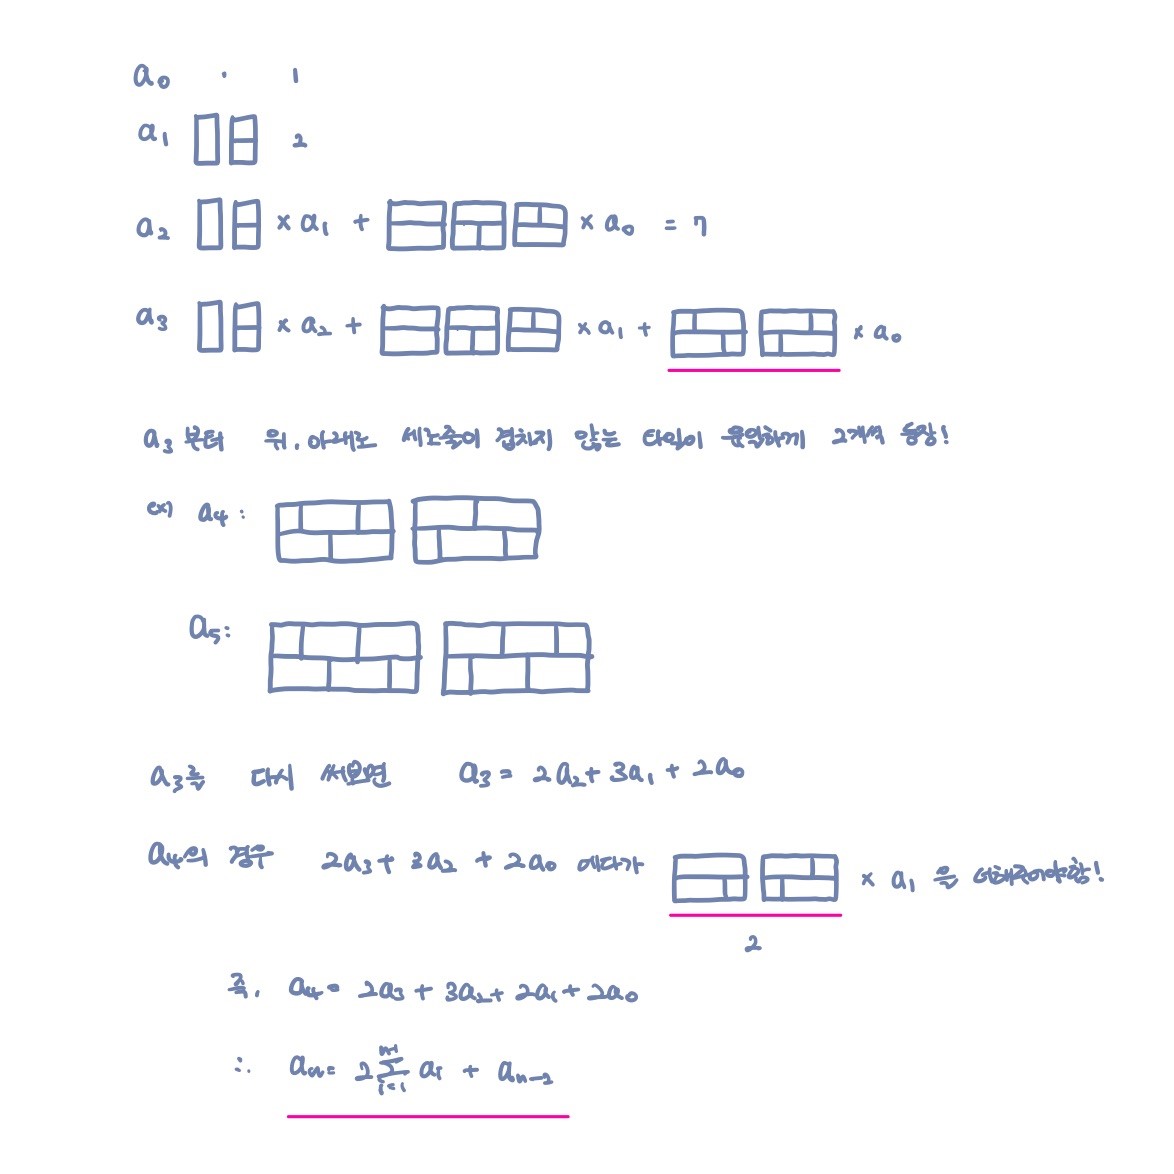 a₀ · 1
a₁ 2
a₂ × a₁ + × a₀ = 7
a₃ × a₂ + × a₁ + × a₀
a₃ 부터 위, 아래로 세로줄이 겹치지 않는 타일이 유일하게 2개씩 등장!
ex) a₄ :
a₅ :
a₃을 다시 써보면 a₃ = 2a₂ + 3a₁ + 2a₀
a₄의 경우 2a₃ + 3a₂ + 2a₀ 에다가 × a₁ 을 더해주어야함!
2
즉, a₄ = 2a₃ + 3a₂ + 2a₁ + 2a₀
∴ aₙ = 2 Σ_{i=1}^{n-1} aᵢ + aₙ₋₂